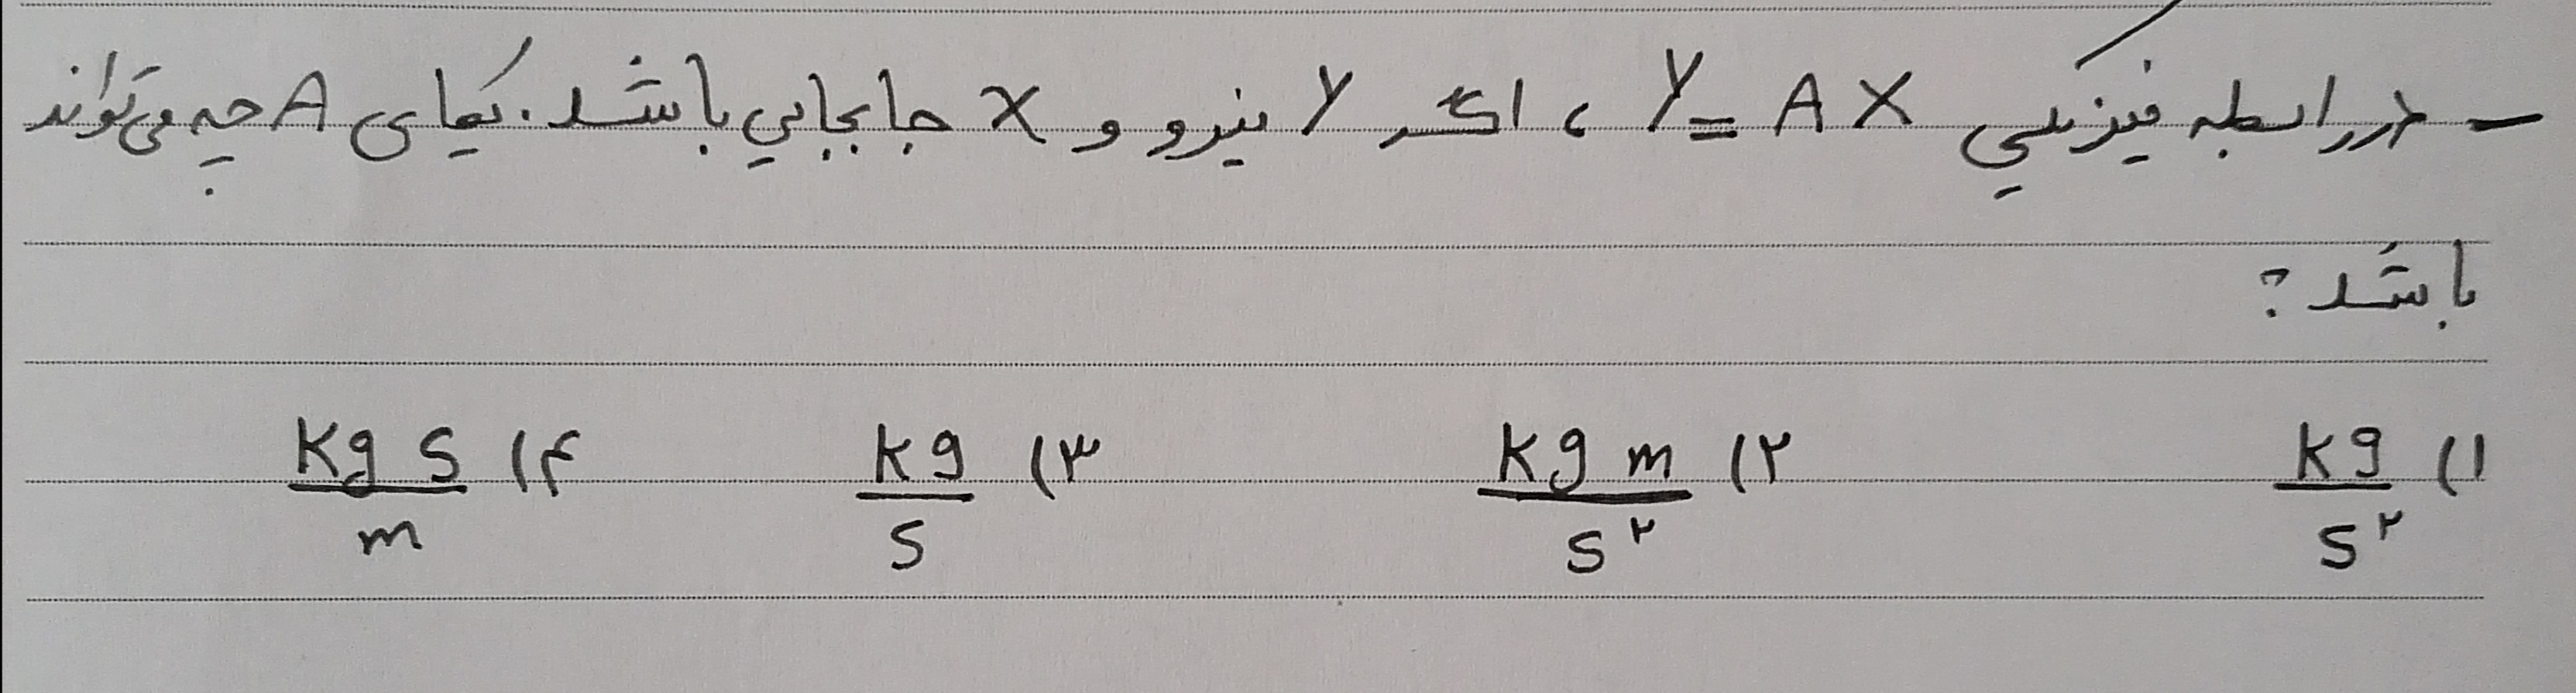 - در رابطه فیزیکی Y = A X ، اگر Y نیرو و X جابجایی باشد. یکای A چه می‌تواند
باشد؟
۱) kg/s^۲ ۲) kg m/s^۲ ۳) kg/s ۴) kg s/m